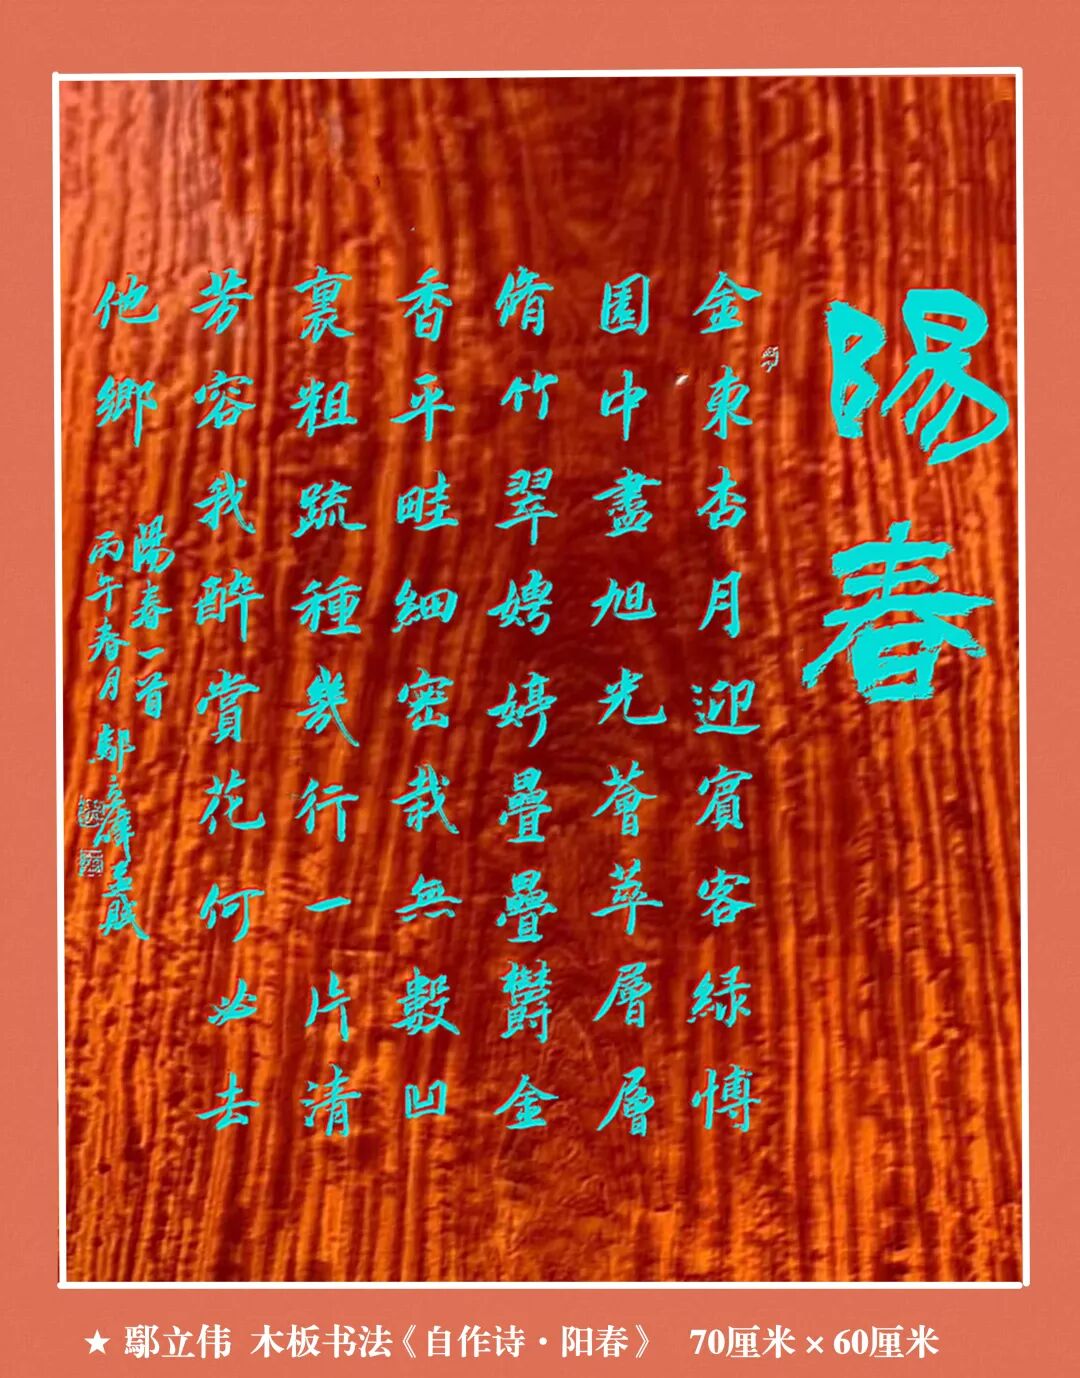 陽春
金東杏月迎賓客綠博
園中盡旭光薈萃層層
脩竹翠娉婷疊疊鬱金
香平畦細密栽無數凹
裏粗疏種幾行一片清
芳容我醉賞花何必去
他鄉
陽春一首
丙午春月鄢立偉並賦
★ 鄢立伟 木板书法《自作诗·阳春》 70厘米×60厘米